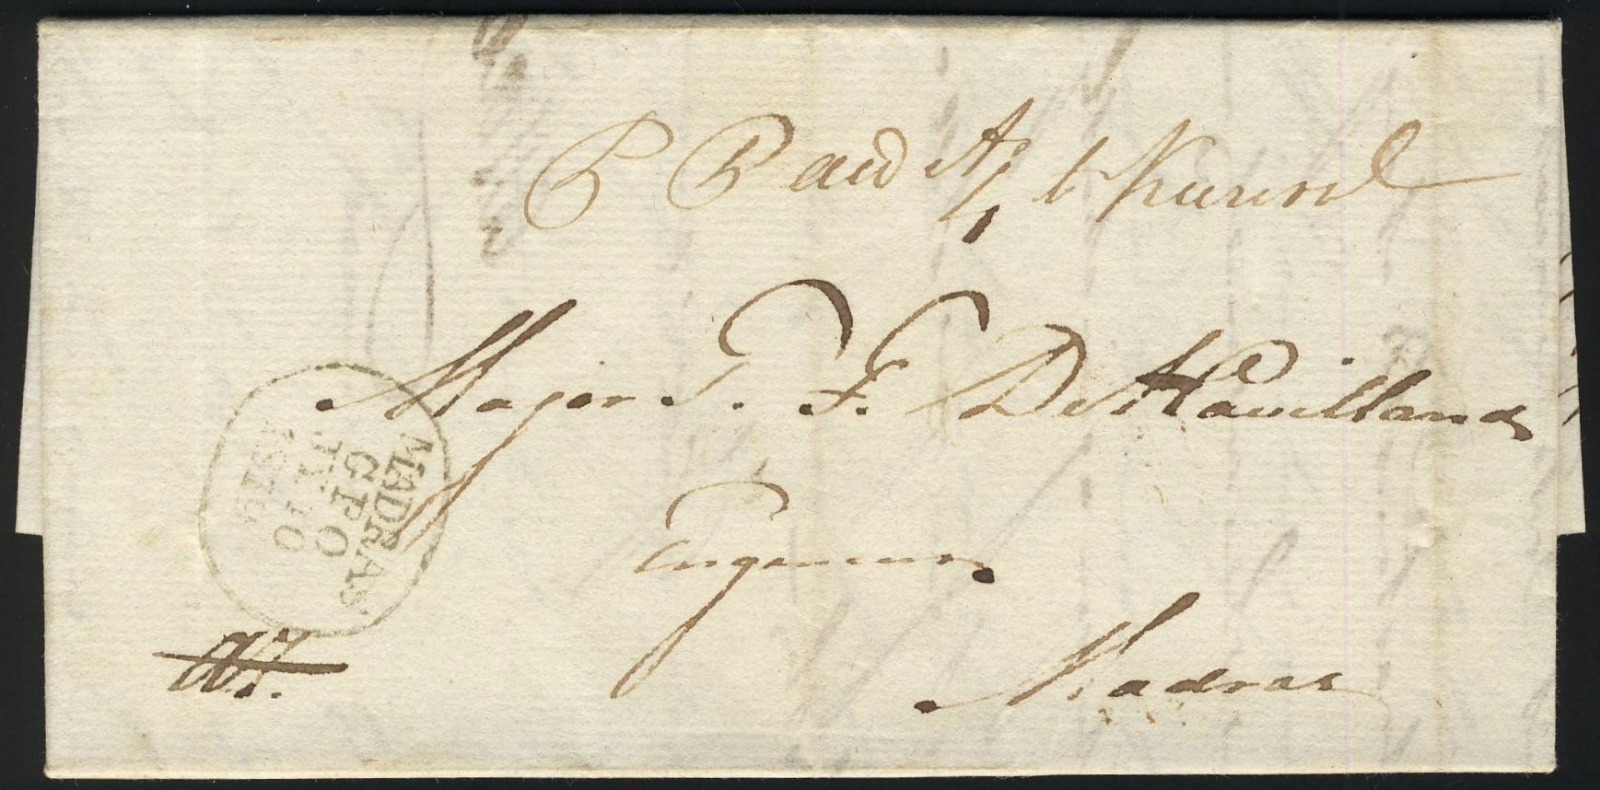 P Paid A/1
Major T. F. De Havilland
Engineers
Madras
MADRAS
G P O
10